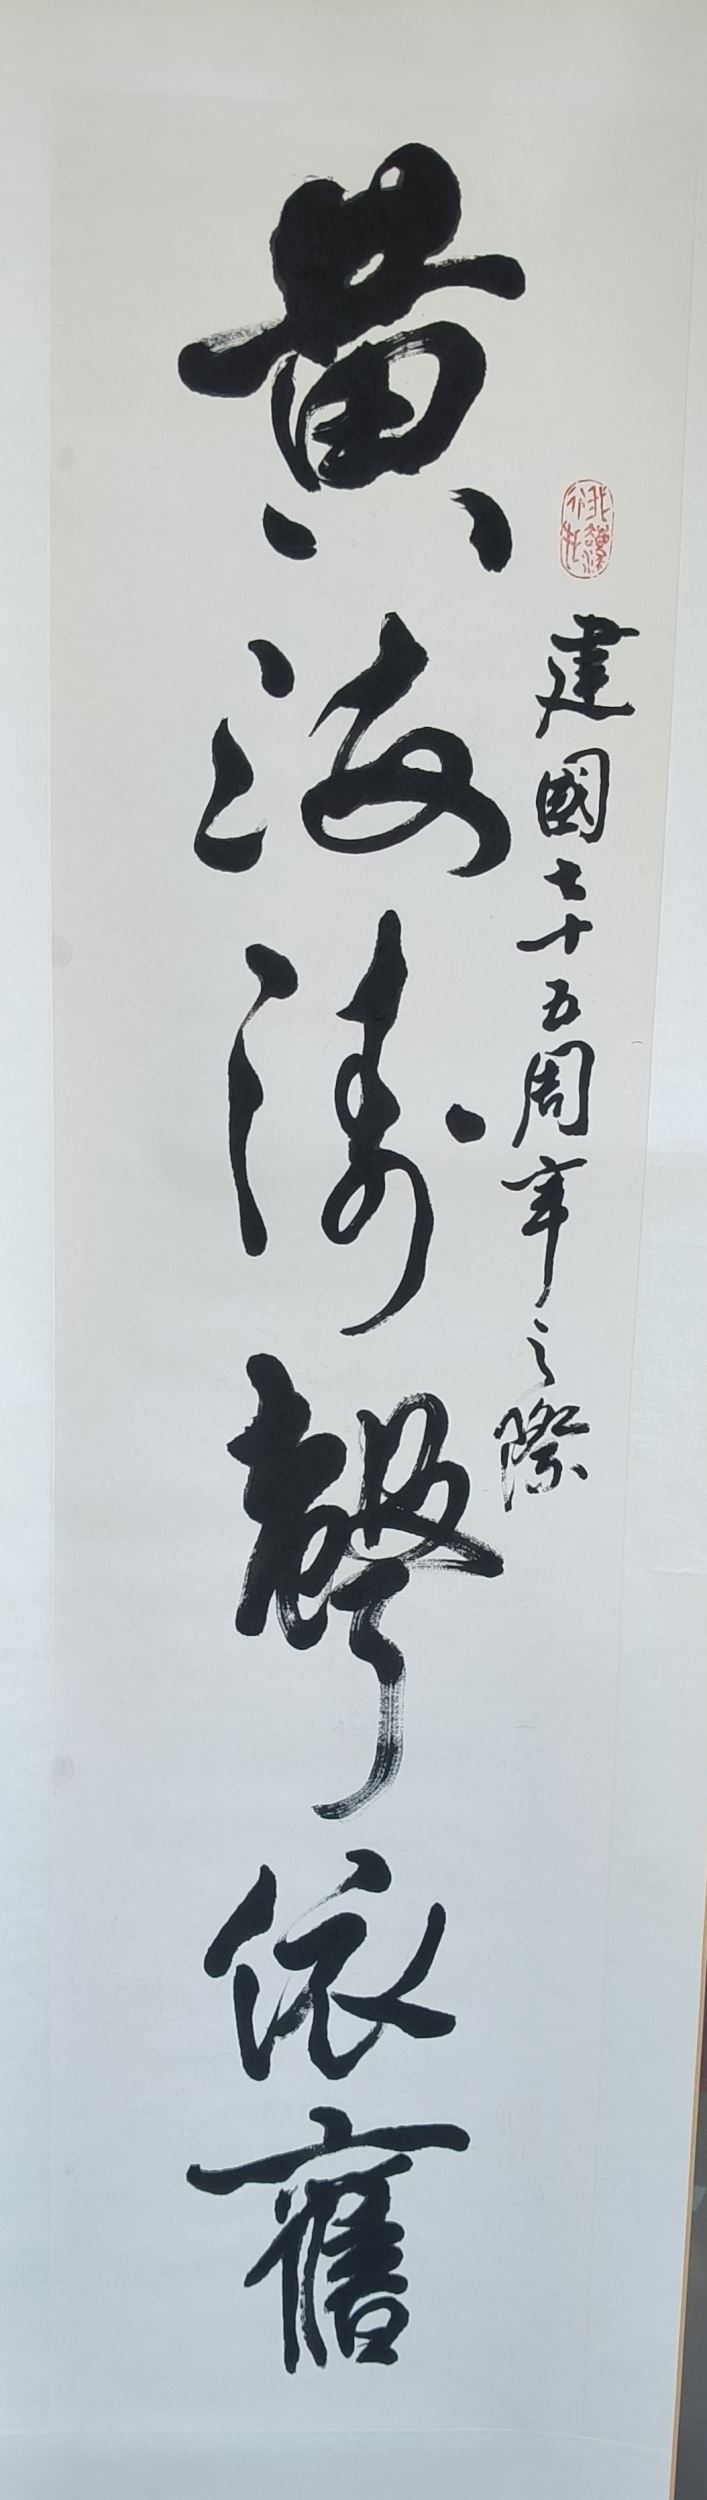 建國七十五周年之際
黃海濤聲依舊